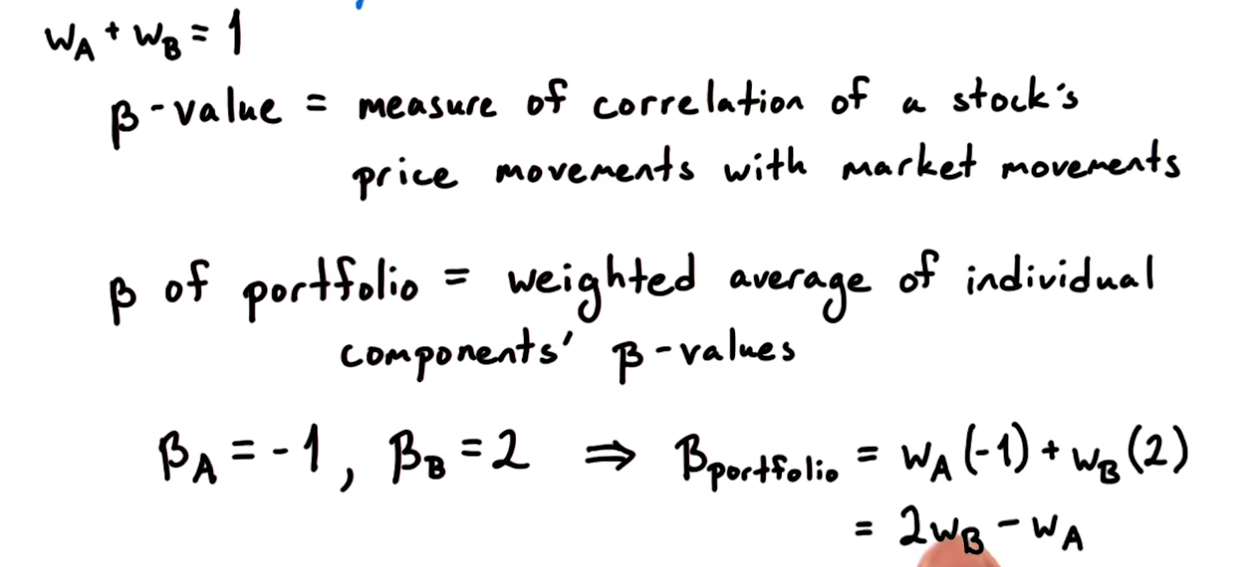 w_A + w_B = 1
β-value = measure of correlation of a stock's
price movements with market movements
β of portfolio = weighted average of individual
components' β-values
β_A = -1, β_B = 2 ⇒ β_portfolio = w_A(-1) + w_B(2)
= 2w_B - w_A